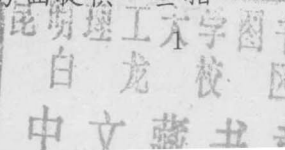 昆明理工大学图
1
白龙校区
中文藏书